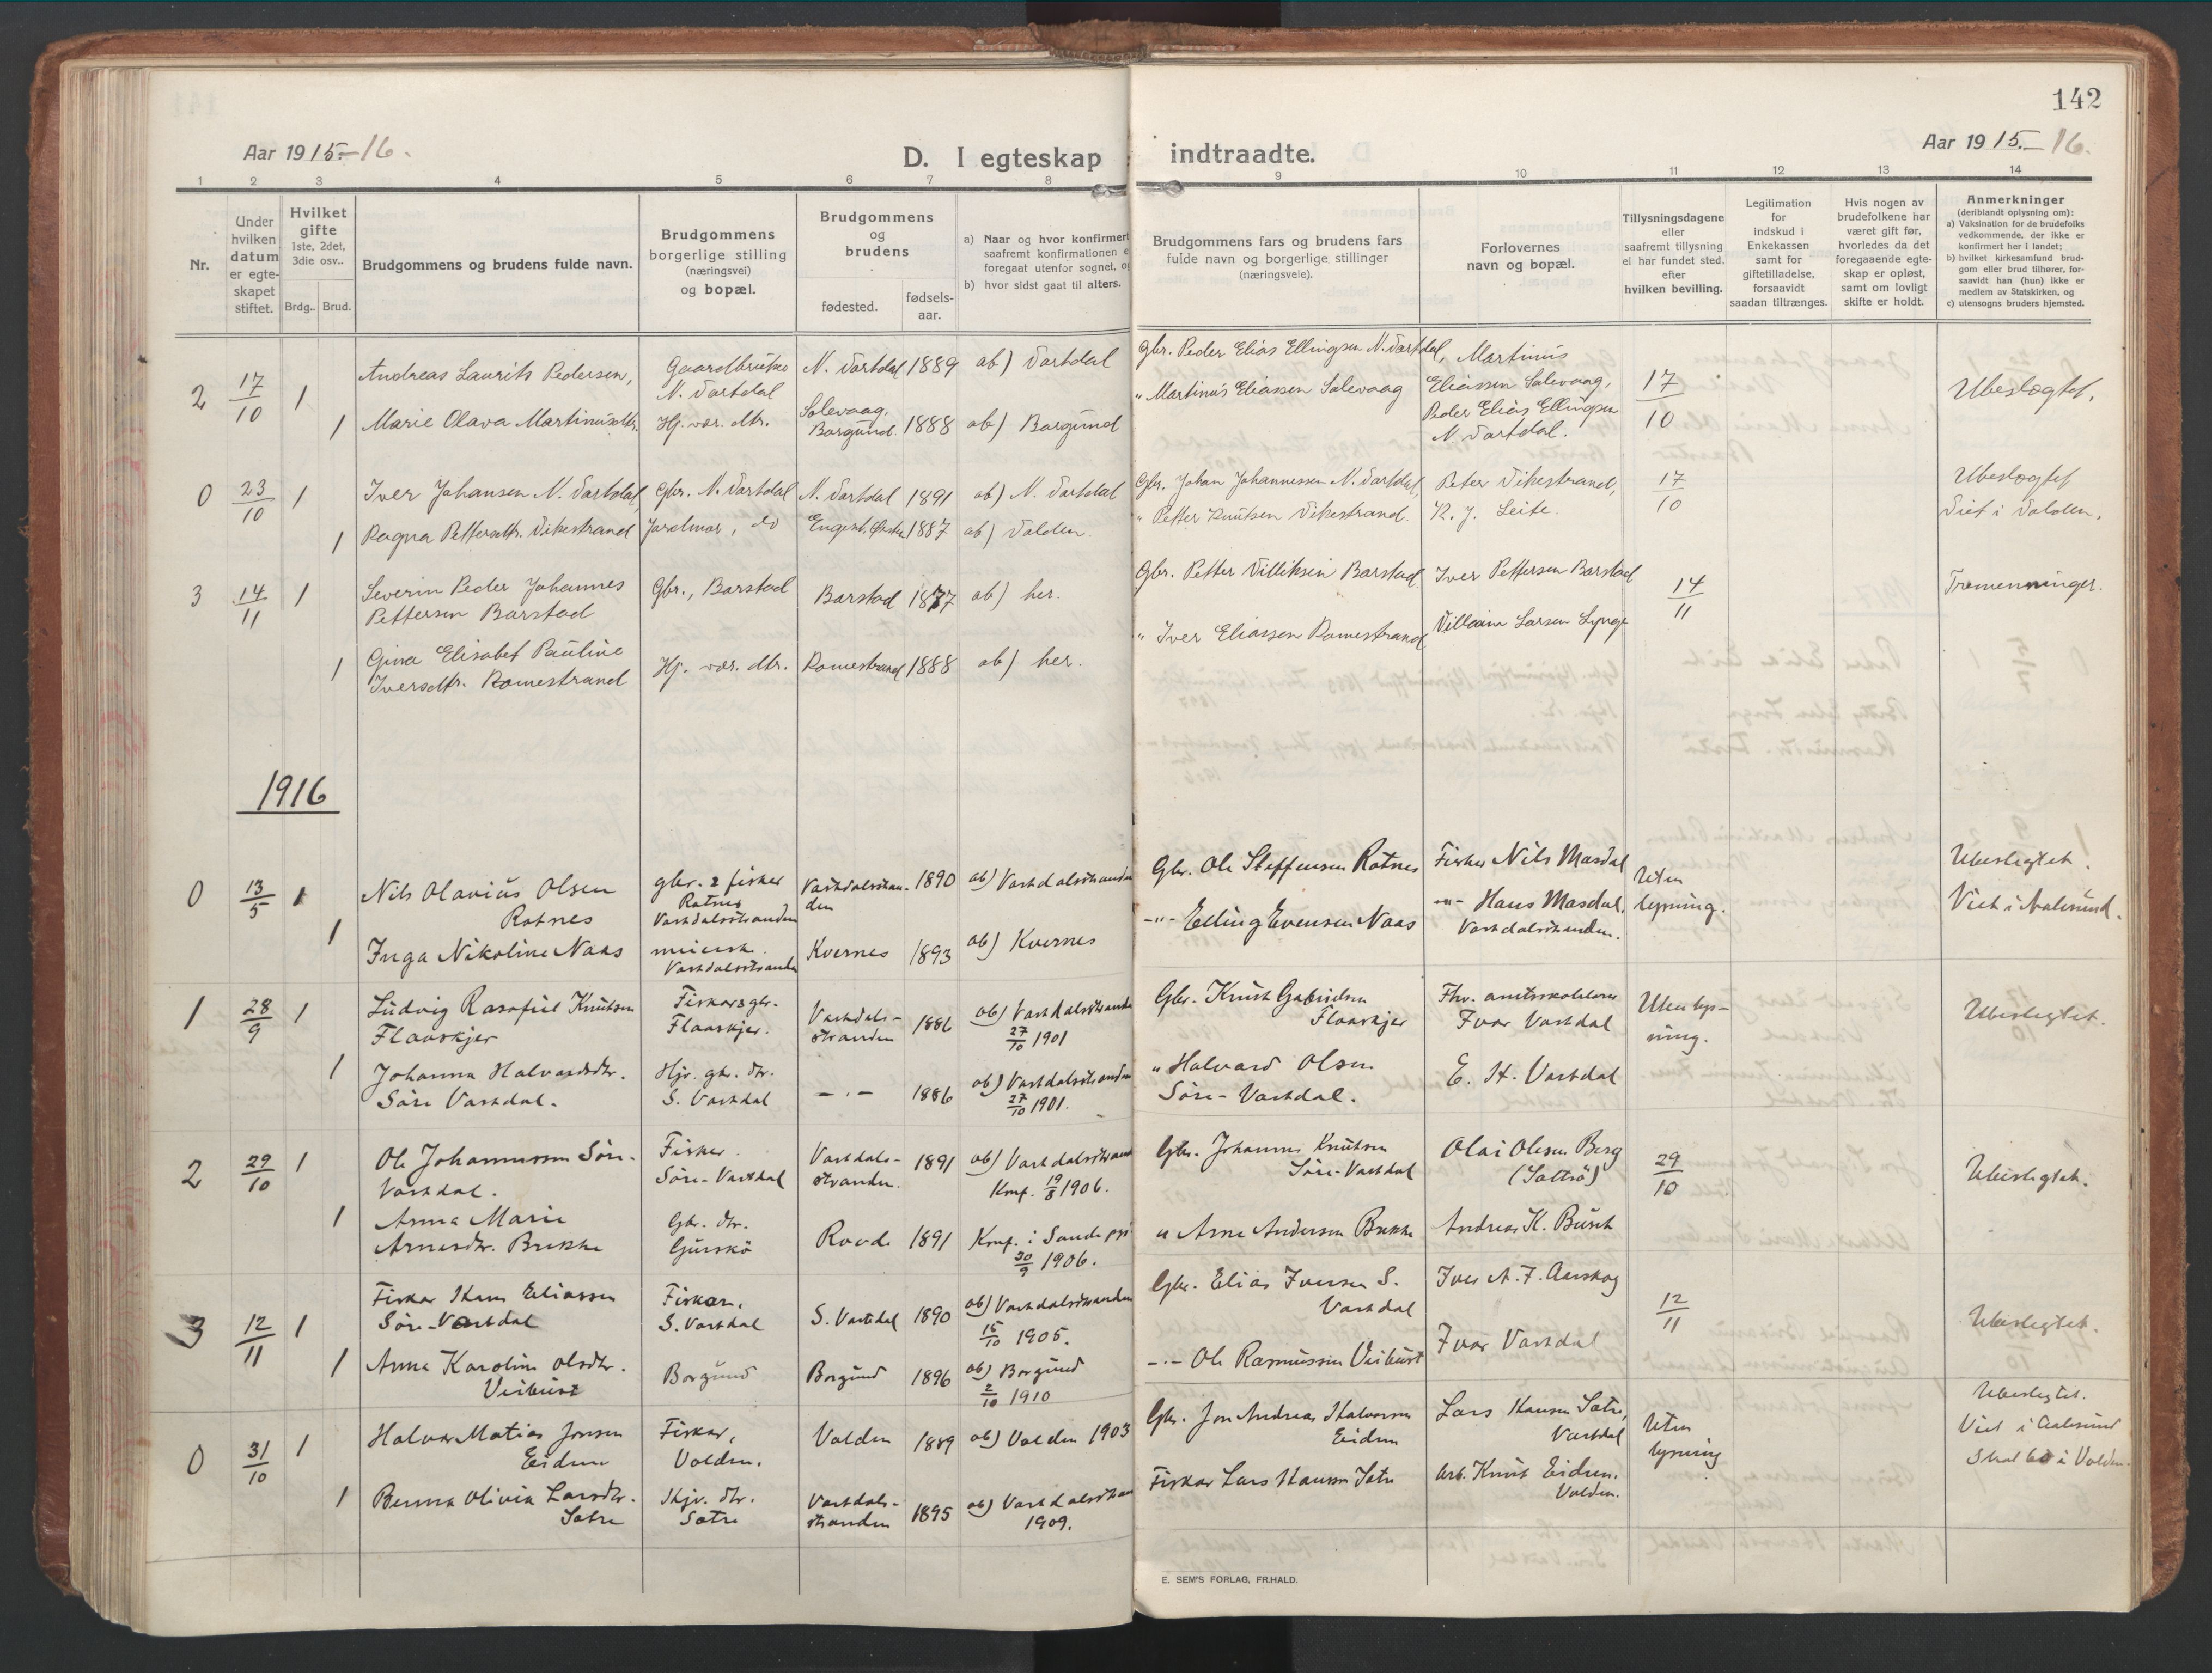 142
Aar 1915.-16.
D. I egteskap indtraadte.
Aar 1915.-16.
1 2 3 4 5 6 7 8 9 10 11 12 13 14
Nr.
Under hvilken datum er egte-skapet stiftet.
Hvilket gifte
1ste, 2det, 3die osv..
Brdg.. Brud.
Brudgommens og brudens fulde navn.
Brudgommens borgerlige stilling (næringsvei) og bopæl.
Brudgommens og brudens
fødested.
fødsels-aar.
a) Naar og hvor konfirmert
saafremt konfirmationen e
foregaat utenfor sognet, og
b) hvor sidst gaat til alters.
Brudgommens fars og brudens fars
fulde navn og borgerlige stillinger
(næringsveie).
Forlovernes
navn og bopæl.
Tillysningsdagene
eller
saafremt tillysning
ei har fundet sted,
efter
hvilken bevilling.
Legitimation
for
indskud i
Enkekassen
samt for
giftetilladelse,
forsaavidt
saadan tiltrænges.
Hvis nogen av
brudefolkene har
været gift før,
hvorledes da det
foregaaende egte-
skap er opløst,
samt om lovligt
skifte er holdt.
Anmerkninger
(deriblandt oplysning om):
a) Vaksination for de brudefolks
vedkommende, der ikke er
konfirmert her i landet;
b) hvilket kirkesamfund brud-
gom eller brud tilhører, for-
saavidt han (hun) ikke er
medlem av Statskirken, og
c) utensogns bruders hjemsted.
2 17/10 1 Andreas Laurits Pedersen, Gaardbruker N. Vartdal N. Vartdal 1889 ab) Vartdal Gbr. Peder Elias Ellingsen N. Vartdal, Martinus Eliassen Solevaag, 17/10 Ubeslægtet.
1 Marie Olava Martinusdtr. Hj. vær. dtr. Solevaag, Borgund. 1888 ab) Borgund " Martinus Eliassen Solevaag Peder Elias Ellingsen N. Vartdal.
0 23/10 1 Iver Johansen N. Vartdal, Gbr. N. Vartdal N. Vartdal 1891 ab) N. Vartdal Gbr. Johan Johannessen N. Vartdal, Peter Vikestrand, 17/10 Ubeslægtet
1 Ragna Pettersdtr. Vikestrand Jordmor, do 1887 ab) Volden. " Petter Knutsen Vikestrand. K. J. Leite. Viet i Volden.
3 14/11 1 Severin Peder Johannes Pettersen Barstad Gbr., Barstad Barstad 1877 ab) her. Gbr. Petter Villiksen Barstad. Iver Pettersen Barstad 14/11 Tremenninger.
1 Gina Elisabet Pauline Iversdtr. Romestrand Hj. vær. dtr. Romestrand 1888 ab) her. " Iver Eliassen Romestrand Villiam Larsen Lynge
1916
0 13/5 1 Nils Olavius Olsen Rotnes gbr. & fisker Rotnes Vartdalsstranden Vartdalsstranden 1890 ab) Vartdalsstranden Gbr. Ole Steffensen Rotnes Fisker Nils Masdal Uten lysning. Ubeslegtet.
1 Inga Nikoline Naas meierske Vartdalsstranden Kvernes 1893 ab) Kvernes -"- Elling Evensen Naas -"- Hans Masdal, Vartdalsstranden. Viet i Aalesund.
1 28/9 1 Ludvig Rasafiel Knutsen Flaaskjer Fisker & gbr. Flaaskjer. Vartdals-stranden 1886 ab) Vartdalsstranden 27/10 1901 Gbr. Knut Gabrielsen Flaaskjer Fhv. amtsskolelærer Ivar Vartdal Uten lys-ning. Ubeslegtet.
1 Johanna Halvardsdtr. Søre Vartdal. Hjv. gbr. dtr. S. Vartdal -"- 1886 ab) Vartdalsstranden 27/10 1901. " Halvard Olsen Søre-Vartdal. E. H. Vartdal
2 29/10 1 Ole Johannessen Søre-Vartdal. Fisker. Søre-Vartdal Vartdals-stranden. 1891 ab) Vartdalsstrand Konf. 19/8 1906. Gbr. Johannes Knutsen Søre-Vartdal Olai Olsen Berg 29/10 Ubeslegtet.
1 Anna Marie Arnesdtr. Brekke Gbr. dtr. Gurskö Rovde 1891 Konf. i Sande 30/9 1906. " Arne Andersen Brekke Andreas K. Busk
3 12/11 1 Fisker Hans Eliassen Søre-Vartdal Fisker, S. Vartdal S. Vartdal 1890 ab) Vartdalsstranden 15/10 1905. Gbr. Elias Iversen S. Vartdal Iver A. F. Aarskog 12/11 Ubeslegtet.
1 Anna Karoline Olsdtr. Veibust Borgund Borgund 1896 ab) Borgund 2/10 1910 -"- Ole Rasmussen Veibust Ivar Vartdal
0 31/10 1 Halvar Matias Jonsen Eidem Fisker, Volden. Volden 1889 ab) Volden 1903 Gbr. Jon Andreas Halvorsen Eidem Lars Hansen Sætre, Vartdal Uten lysning Ubeslegtet.
Viet i Aalesund
Skal bo i Volden.
1 Berina Olivia Larsdtr. Sætre Hjv. dtr. Sætre Vartdals-stranden 1895 ab) Vartdalsstran 1909. Fisker Lars Hansen Sætre Arb. Knut Eidem. Volden.
E. SEM'S FORLAG, FR.HALD.